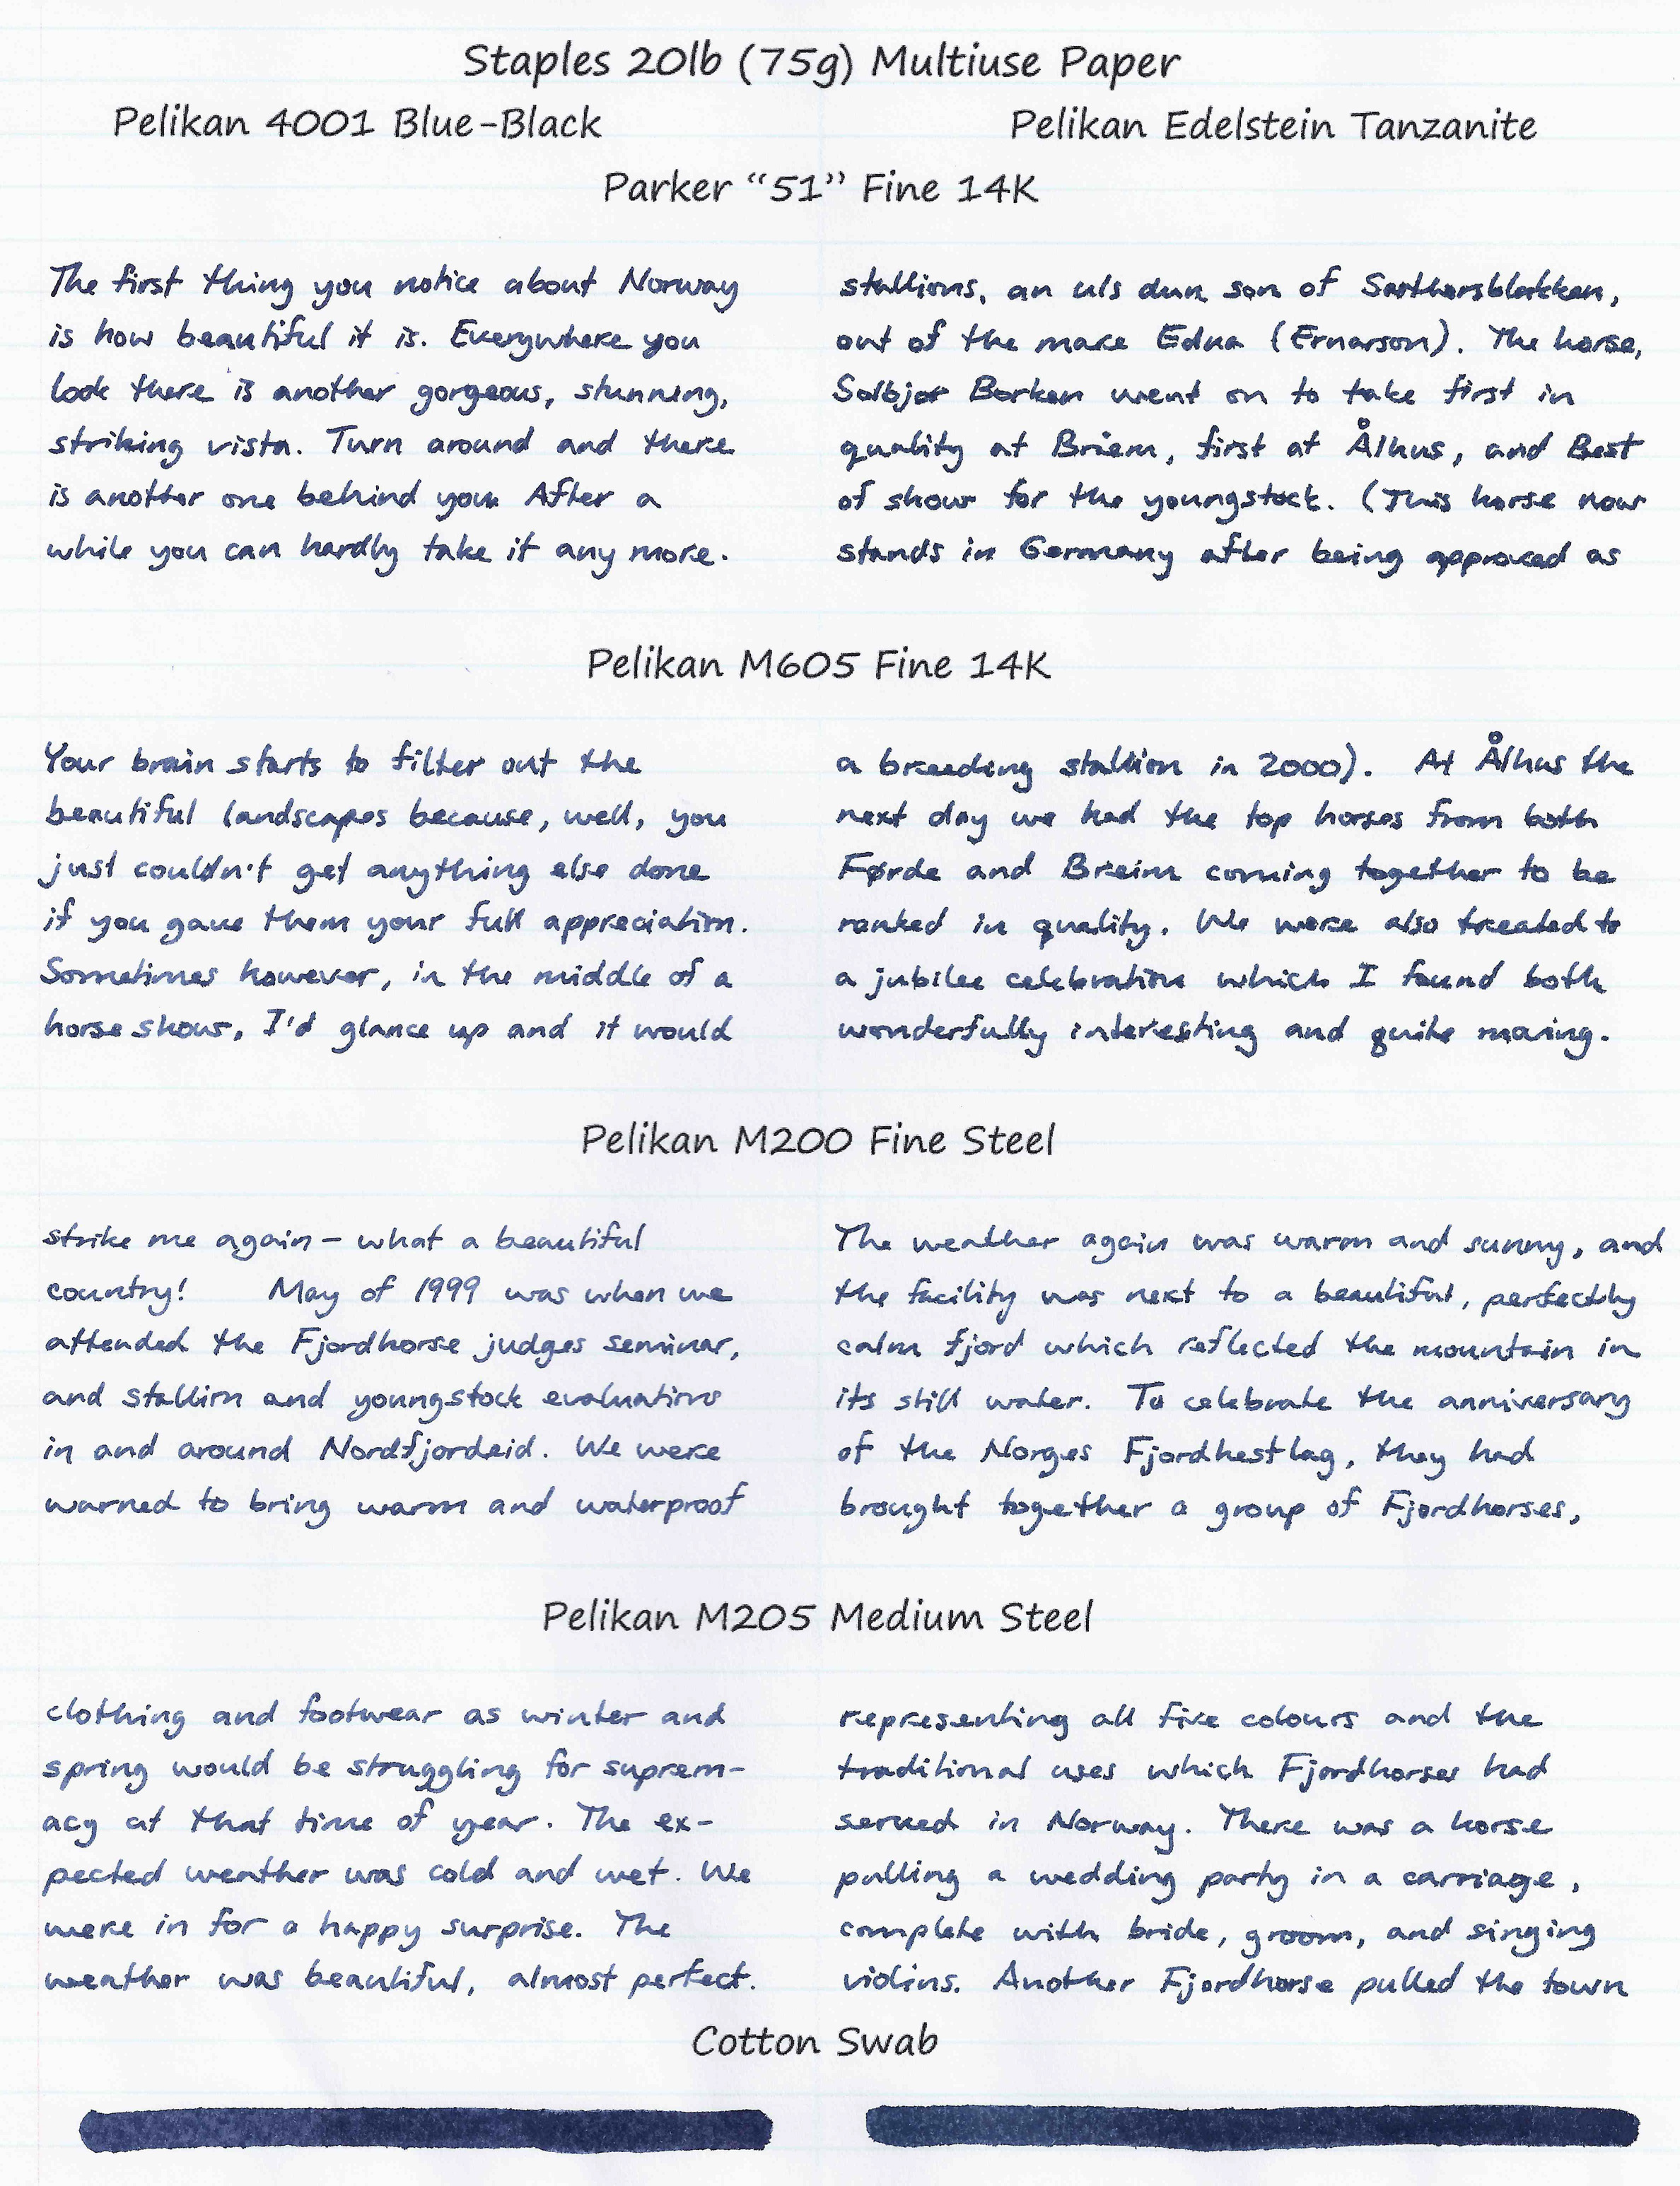 Staples 20lb (75g) Multiuse Paper
Pelikan 4001 Blue-Black
Pelikan Edelstein Tanzanite
Parker “51” Fine 14K
The first thing you notice about Norway
is how beautiful it is. Everywhere you
look there is another gorgeous, stunning,
striking vista. Turn around and there
is another one behind you. After a
while you can hardly take it any more.
stallions, an uls dun son of
out of the mare Edna (Ernarson). The horse,
Solbjør Borken went on to take first in
quality at Breim, first at Ålhus, and Best
of show for the youngstock. (This horse now
stands in Germany after being approved as
Pelikan M605 Fine 14K
Your brain starts to filter out the
beautiful landscapes because, well, you
just couldn't get anything else done
if you gave them your full appreciation.
Sometimes however, in the middle of a
horse show, I'd glance up and it would
a breeding stallion in 2000). At Ålhus the
next day we had the top horses from both
Førde and Breim coming together to be
ranked in quality. We were also treated to
a jubilee celebration which I found both
wonderfully interesting and quite moving.
Pelikan M200 Fine Steel
strike me again – what a beautiful
country! May of 1999 was when we
attended the Fjordhorse judges seminar,
and stallion and youngstock evaluations
in and around Nordfjordeid. We were
warned to bring warm and waterproof
The weather again was warm and sunny, and
the facility was next to a beautiful, perfectly
calm fjord which reflected the mountain in
its still water. To celebrate the anniversary
of the Norges Fjordhestlag, they had
brought together a group of Fjordhorses,
Pelikan M205 Medium Steel
clothing and footwear as winter and
spring would be struggling for suprem-
acy at that time of year. The ex-
pected weather was cold and wet. We
were in for a happy surprise. The
weather was beautiful, almost perfect.
representing all five colours and the
traditional uses which Fjordhorses had
served in Norway. There was a horse
pulling a wedding party in a carriage,
complete with bride, groom, and singing
violins. Another Fjordhorse pulled the town
Cotton Swab